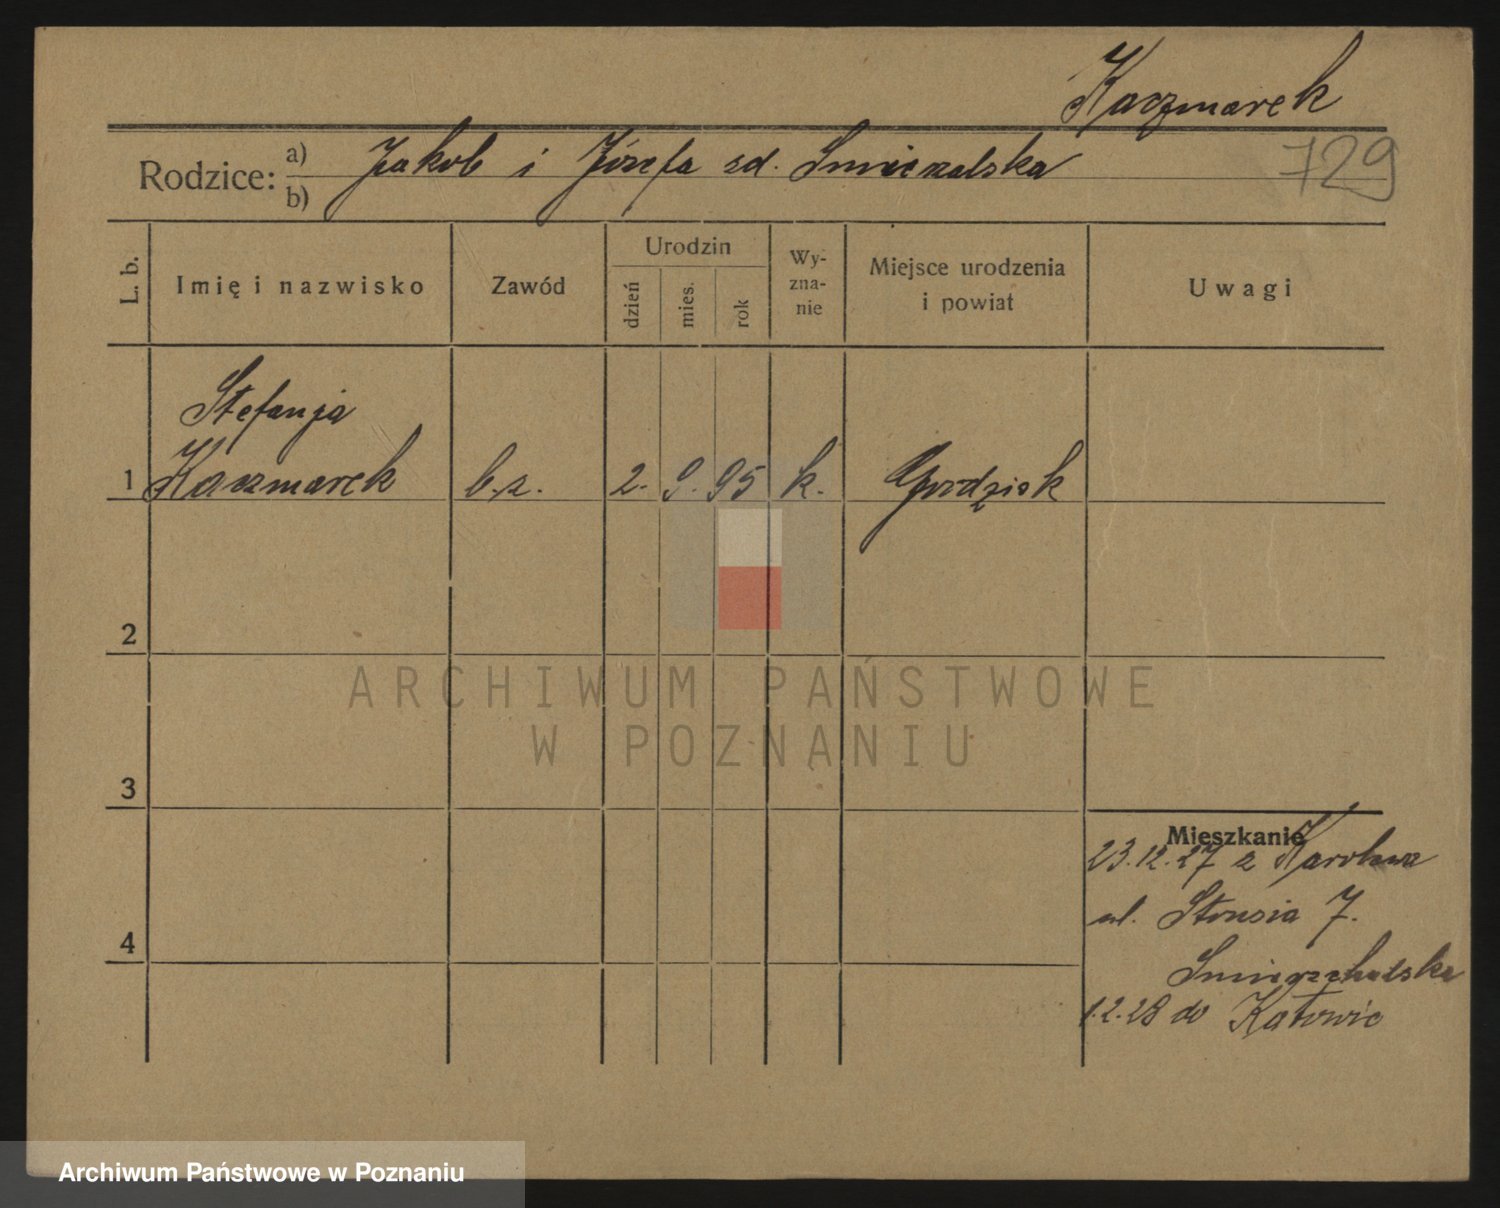 Kaczmarek
Rodzice: a) b) Jakob i Józefa zd. Smierzalska
729
L. b. Imię i nazwisko Zawód Urodzin dzień mies. rok Wy-zna-nie Miejsce urodzenia i powiat Uwagi
Stefanja
1 Kaczmarek b.z. 2. 9. 95 k. Grodzisk
2
ARCHIWUM PAŃSTWOWE
W POZNANIU
3
Mieszkanie
23.12.27 z
ul. 7.
4
1.2.28 do Katowic
Archiwum Państwowe w Poznaniu